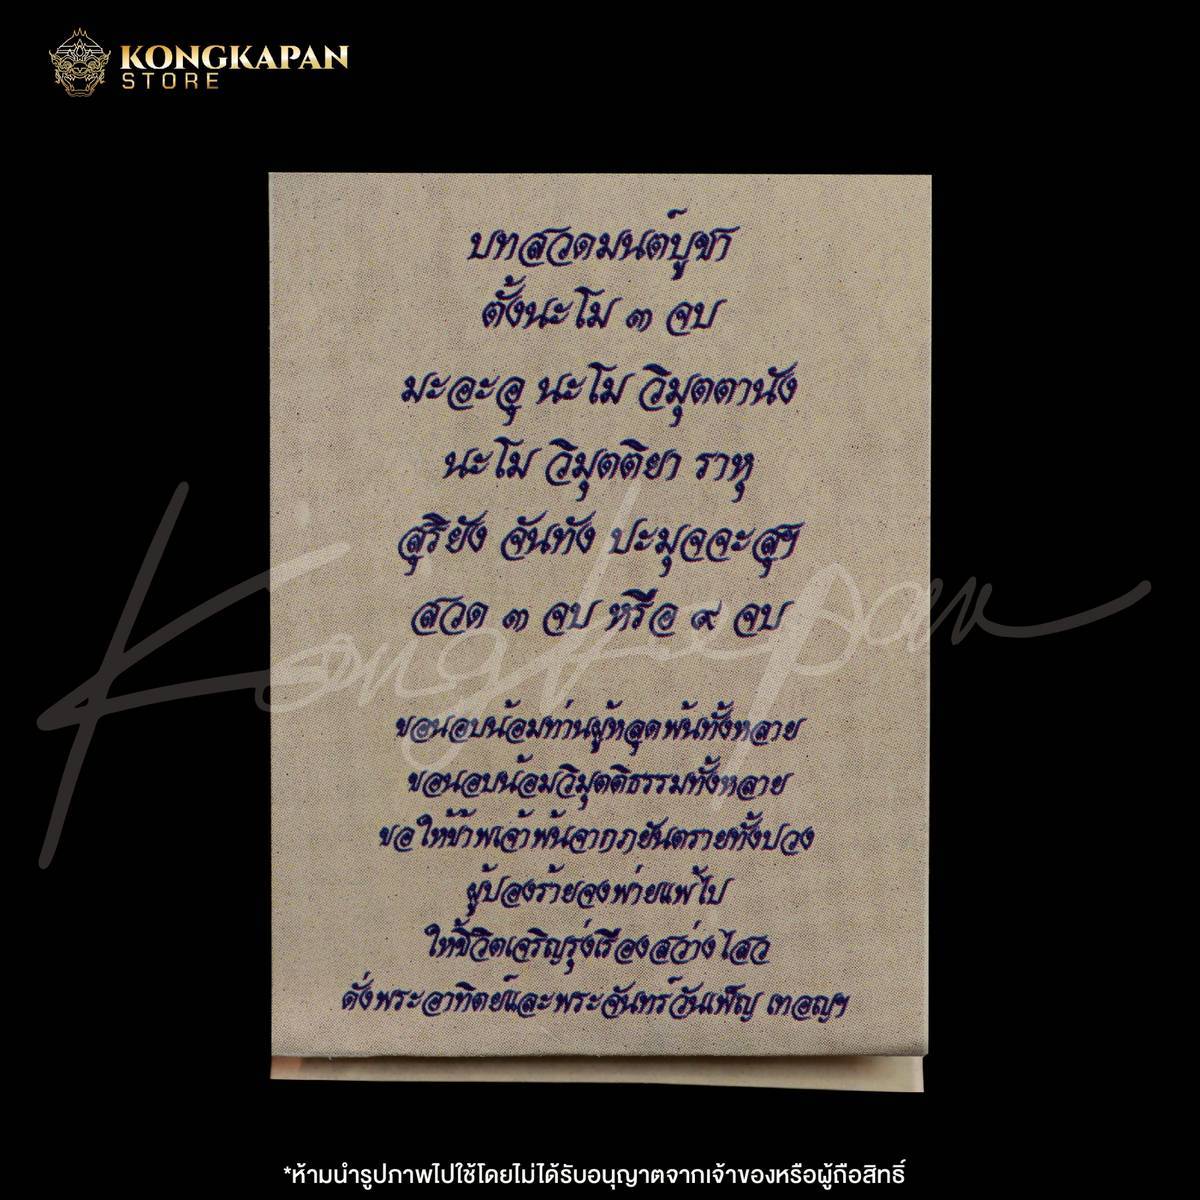 KONGKAPAN
STORE
บทสวดมนต์บูชา
ตั้งนะโม ๓ จบ
มะอะอุ นะโม วิมุตตานัง
นะโม วิมุตติยา ราหุ
สุริยัง จันทัง ปะมุจจะสุฯ
สวด ๓ จบ หรือ ๙ จบ
Kongkapan
ขอนอบน้อมท่านผู้หลุดพ้นทั้งหลาย
ขอนอบน้อมวิมุตติธรรมทั้งหลาย
ขอให้ข้าพเจ้าพ้นจากภยันตรายทั้งปวง
ผู้ปองร้ายจงพ่ายแพ้ไป
ให้ชีวิตเจริญรุ่งเรืองสว่างไสว
ดั่งพระอาทิตย์และพระจันทร์วันเพ็ญ เทอญฯ
*ห้ามนำรูปภาพไปใช้โดยไม่ได้รับอนุญาตจากเจ้าของหรือผู้ถือสิทธิ์